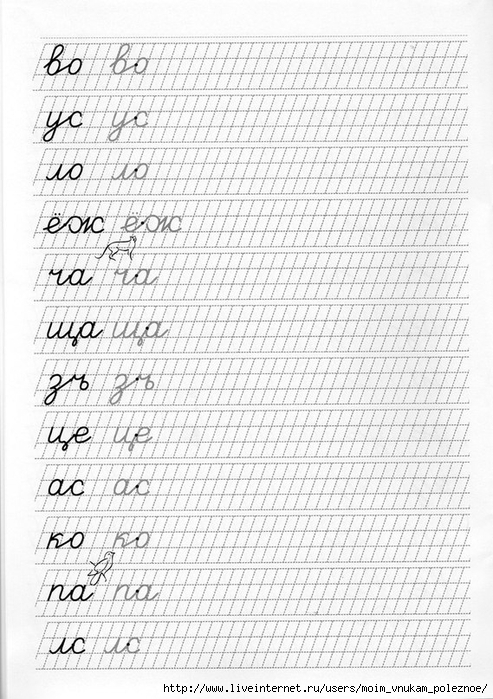 во во
ус ус
ло ло
ёж ёж
ча ча
ща ща
зъ зъ
це це
ас ас
ко ко
па па
лс лс
http://www.liveinternet.ru/users/moim_vnukam_poleznoe/